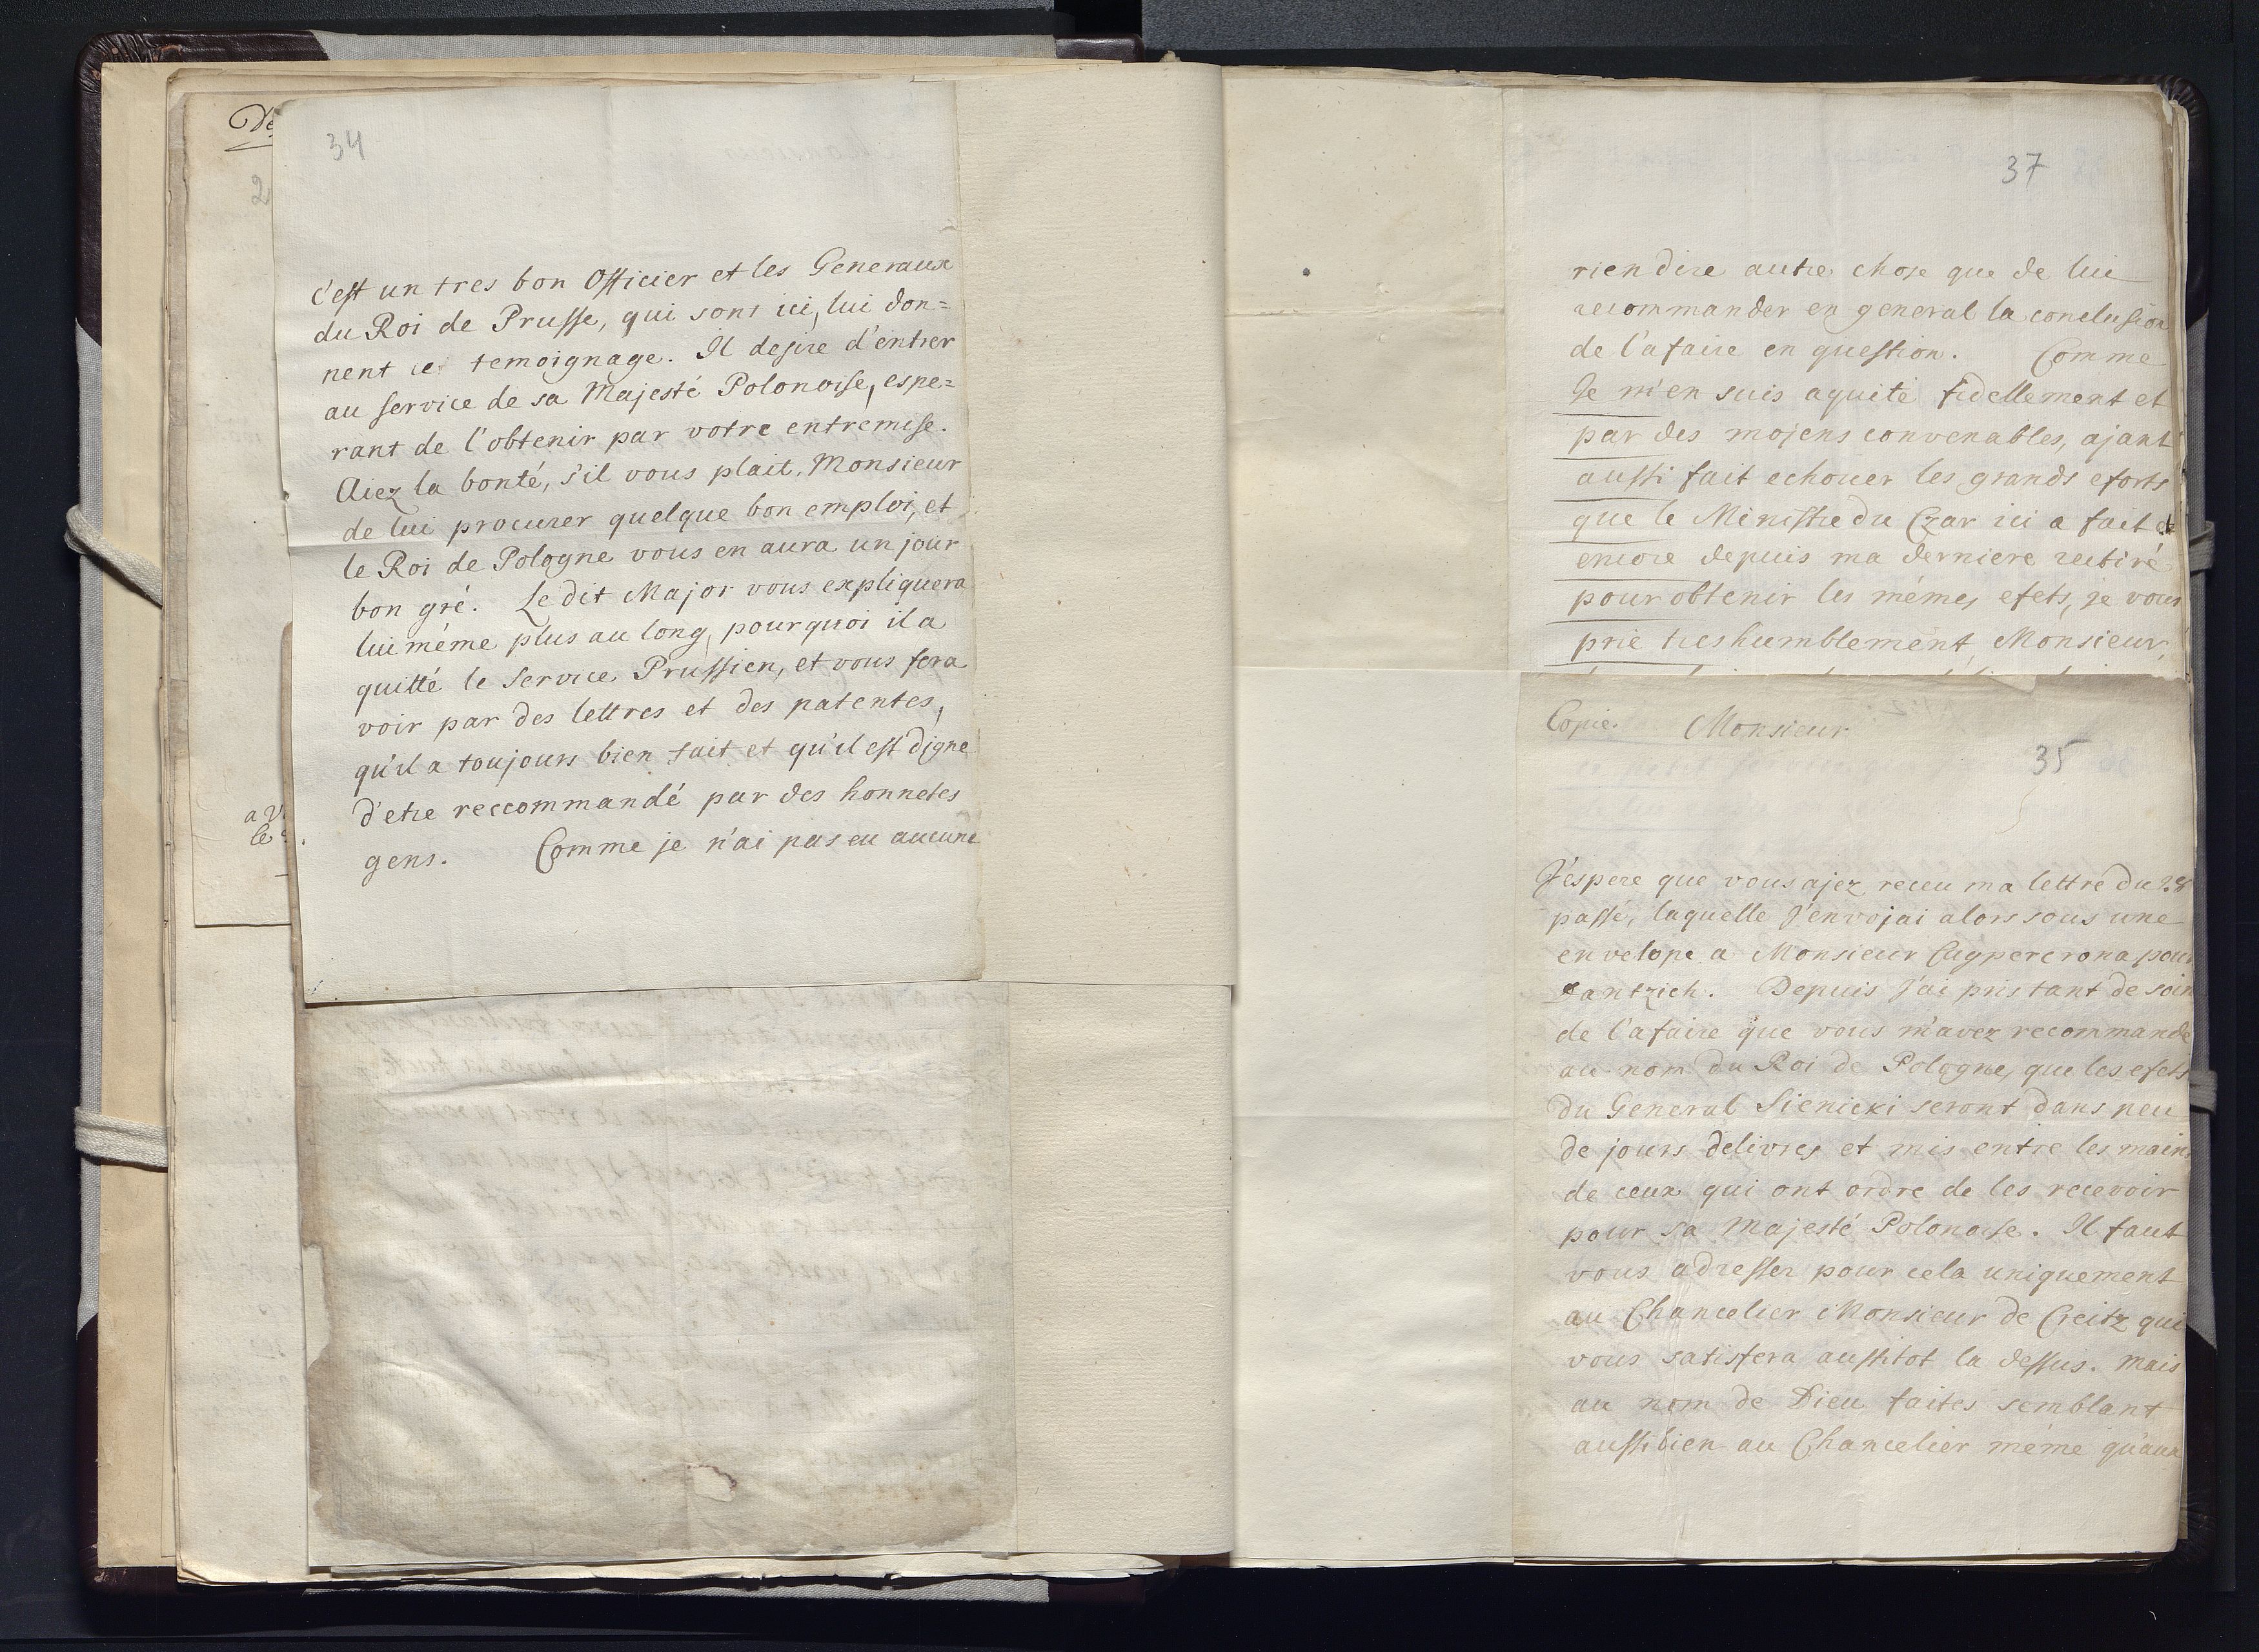 34
c'est un tres bon Officier et les Generaux
du Roi de Prusse, qui sont ici, lui don=
nent ce temoignage. Il desire d'entrer
au service de sa Majesté Polonoise, espe=
rant de l'obtenir par votre entremise.
Aiez la bonté, s'il vous plait, Monsieur
de lui procurer quelque bon emploi, et
le Roi de Pologne vous en aura un jour
bon gré. Le dit Major vous expliquera
lui même plus au long, pourquoi il a
quitté le Service Prussien, et vous fera
voir par des lettres et des patentes,
qu'il a toujours bien fait et qu'il est digne
d'etre reccommandé par des honnetes
gens. Comme je n'ai pas eu aucune
37
rien dire autre chose que de lui
recommander en general la conclusion
de l'afaire en question. Comme
Je m'en suis aquité fidellement et
par des mojens convenables, ajant
aussi fait echouer les grands eforts
que le Ministre du Czar ici a fait et
encore depuis ma derniere reitiré
pour obtenir les mêmes efets, je vous
prie tres humblement, Monsieur,
Copie. Monsieur
35
J'espere que vous ajez receu ma lettre du 28
passé, laquelle J'envojai alors sous une
envelope a Monsieur Cuypercrona pour
Dantzich. Depuis J'ai pris tant de soin
de l'afaire que vous m'avez recommandé
au nom du Roi de Pologne, que les efets
du General Sienicki seront dans peu
de jours delivrés et mis entre les mains
de ceux qui ont ordre de les recevoir
pour sa Majesté Polonoise. Il faut
vous adresser pour cela uniquement
au Chancelier Monsieur de Creitz qui
vous satisfera aussitot la dessus. Mais
au nom de Dieu faites semblant
aussi bien au Chancelier même qu'aux